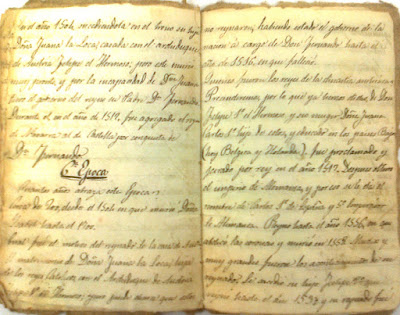 en el año 1504, sucediéndola en el trono su hija
Doña Juana la Loca, casada con el archiduque
de Austria Felipe el Hermoso, pero este murió
muy pronto, y por la incapacidad de Dña Juana
tuvo el gobierno del reyno su Padre Dn Fernando
Durante el, en el año de 1512, fue agregado el reyno
de Navarra al de Castilla por conquista de
Dn Fernando.
6ª Epoca
años abraza esta Epoca y
desde el 1504 en que murió Doña
hasta el 1700.
fué el motivo del reynado de la casa de Austria
el matrimonio de Doña Juana la Loca, hija
de los reyes Catolicos, con el Archiduque de Austria
Felipe 1º el Hermoso, que
no reynaron, habiendo estado el gobierno de la
nacion á cargo de Don Fernando hasta el
año de 1516, en que falleció.
Quienes fueron los reyes de la dinastia austriaca
Prescindiremos, por lo que ya hemos dicho, de Don
Felipe 1º el Hermoso, y su muger Doña Juana
Carlos 1º hijo de estos, y educado en los paises Bajos
(hoy Belgica y Holanda), fué proclamado y
jurado por rey en el año 1517. Despues obtuvo
el imperio de Alemania, y por eso se le dá el
nombre de Carlos 1º de España y 5º Emperador
de Alemania. Reyno hasta el año 1556, en que
abdicó las coronas y murio en 1558. Muchos y
muy grandes fueron los acontecimientos de su
reynado. Le sucedio su hijo Felipe 2º que
reynó hasta el año 1598 y su reynado fué